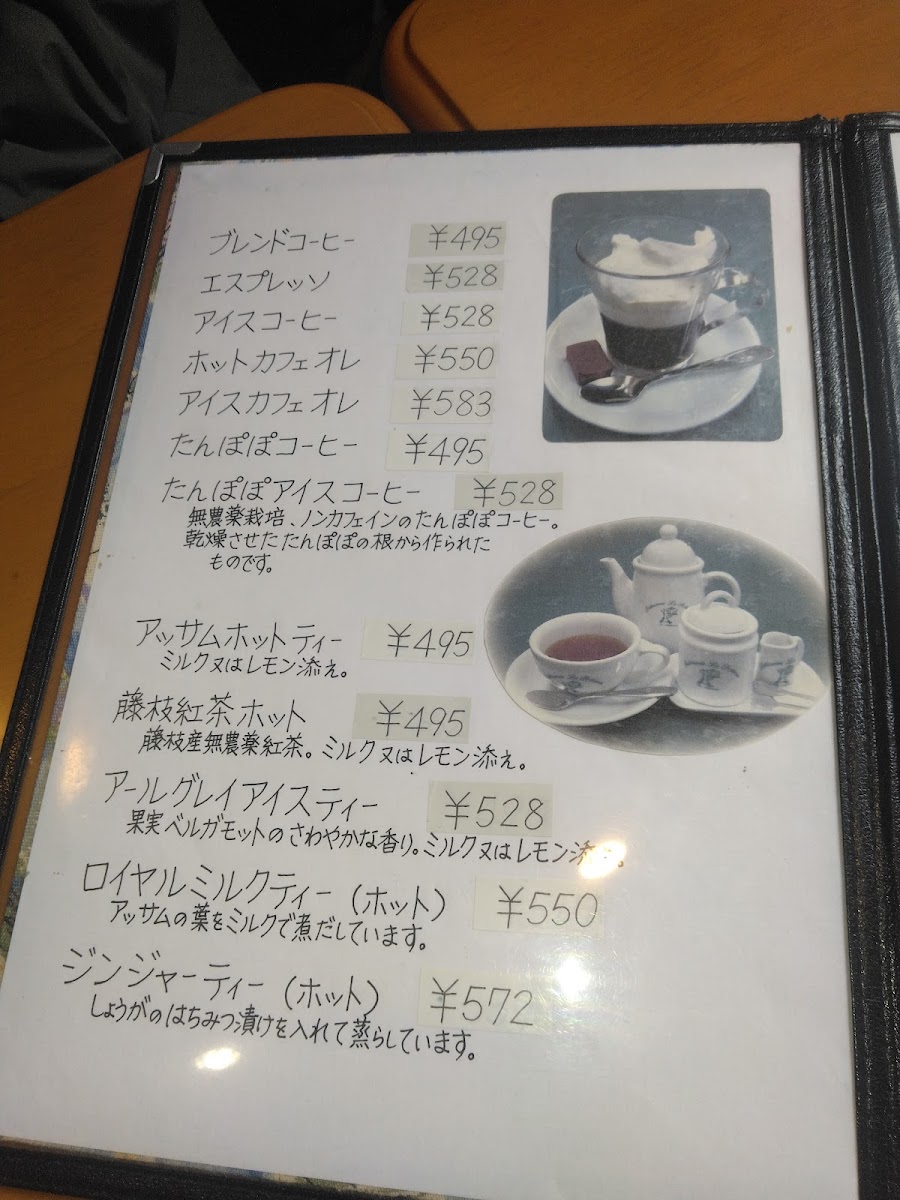 ブレンドコーヒー ¥495
エスプレッソ ¥528
アイスコーヒー ¥528
ホットカフェオレ ¥550
アイスカフェオレ ¥583
たんぽぽコーヒー ¥495
たんぽぽアイスコーヒー ¥528
無農薬栽培、ノンカフェインのたんぽぽコーヒー。
乾燥させたたんぽぽの根から作られた
ものです。
アッサムホットティー ¥495
ミルク又はレモン添え。
藤枝紅茶ホット ¥495
藤枝産無農薬紅茶。ミルク又はレモン添え。
アールグレイアイスティー ¥528
果実ベルガモットのさわやかな香り。ミルク又はレモン添え。
ロイヤルミルクティー(ホット) ¥550
アッサムの葉をミルクで煮だしています。
ジンジャーティー(ホット) ¥572
しょうがのはちみつ漬けを入れて蒸らしています。